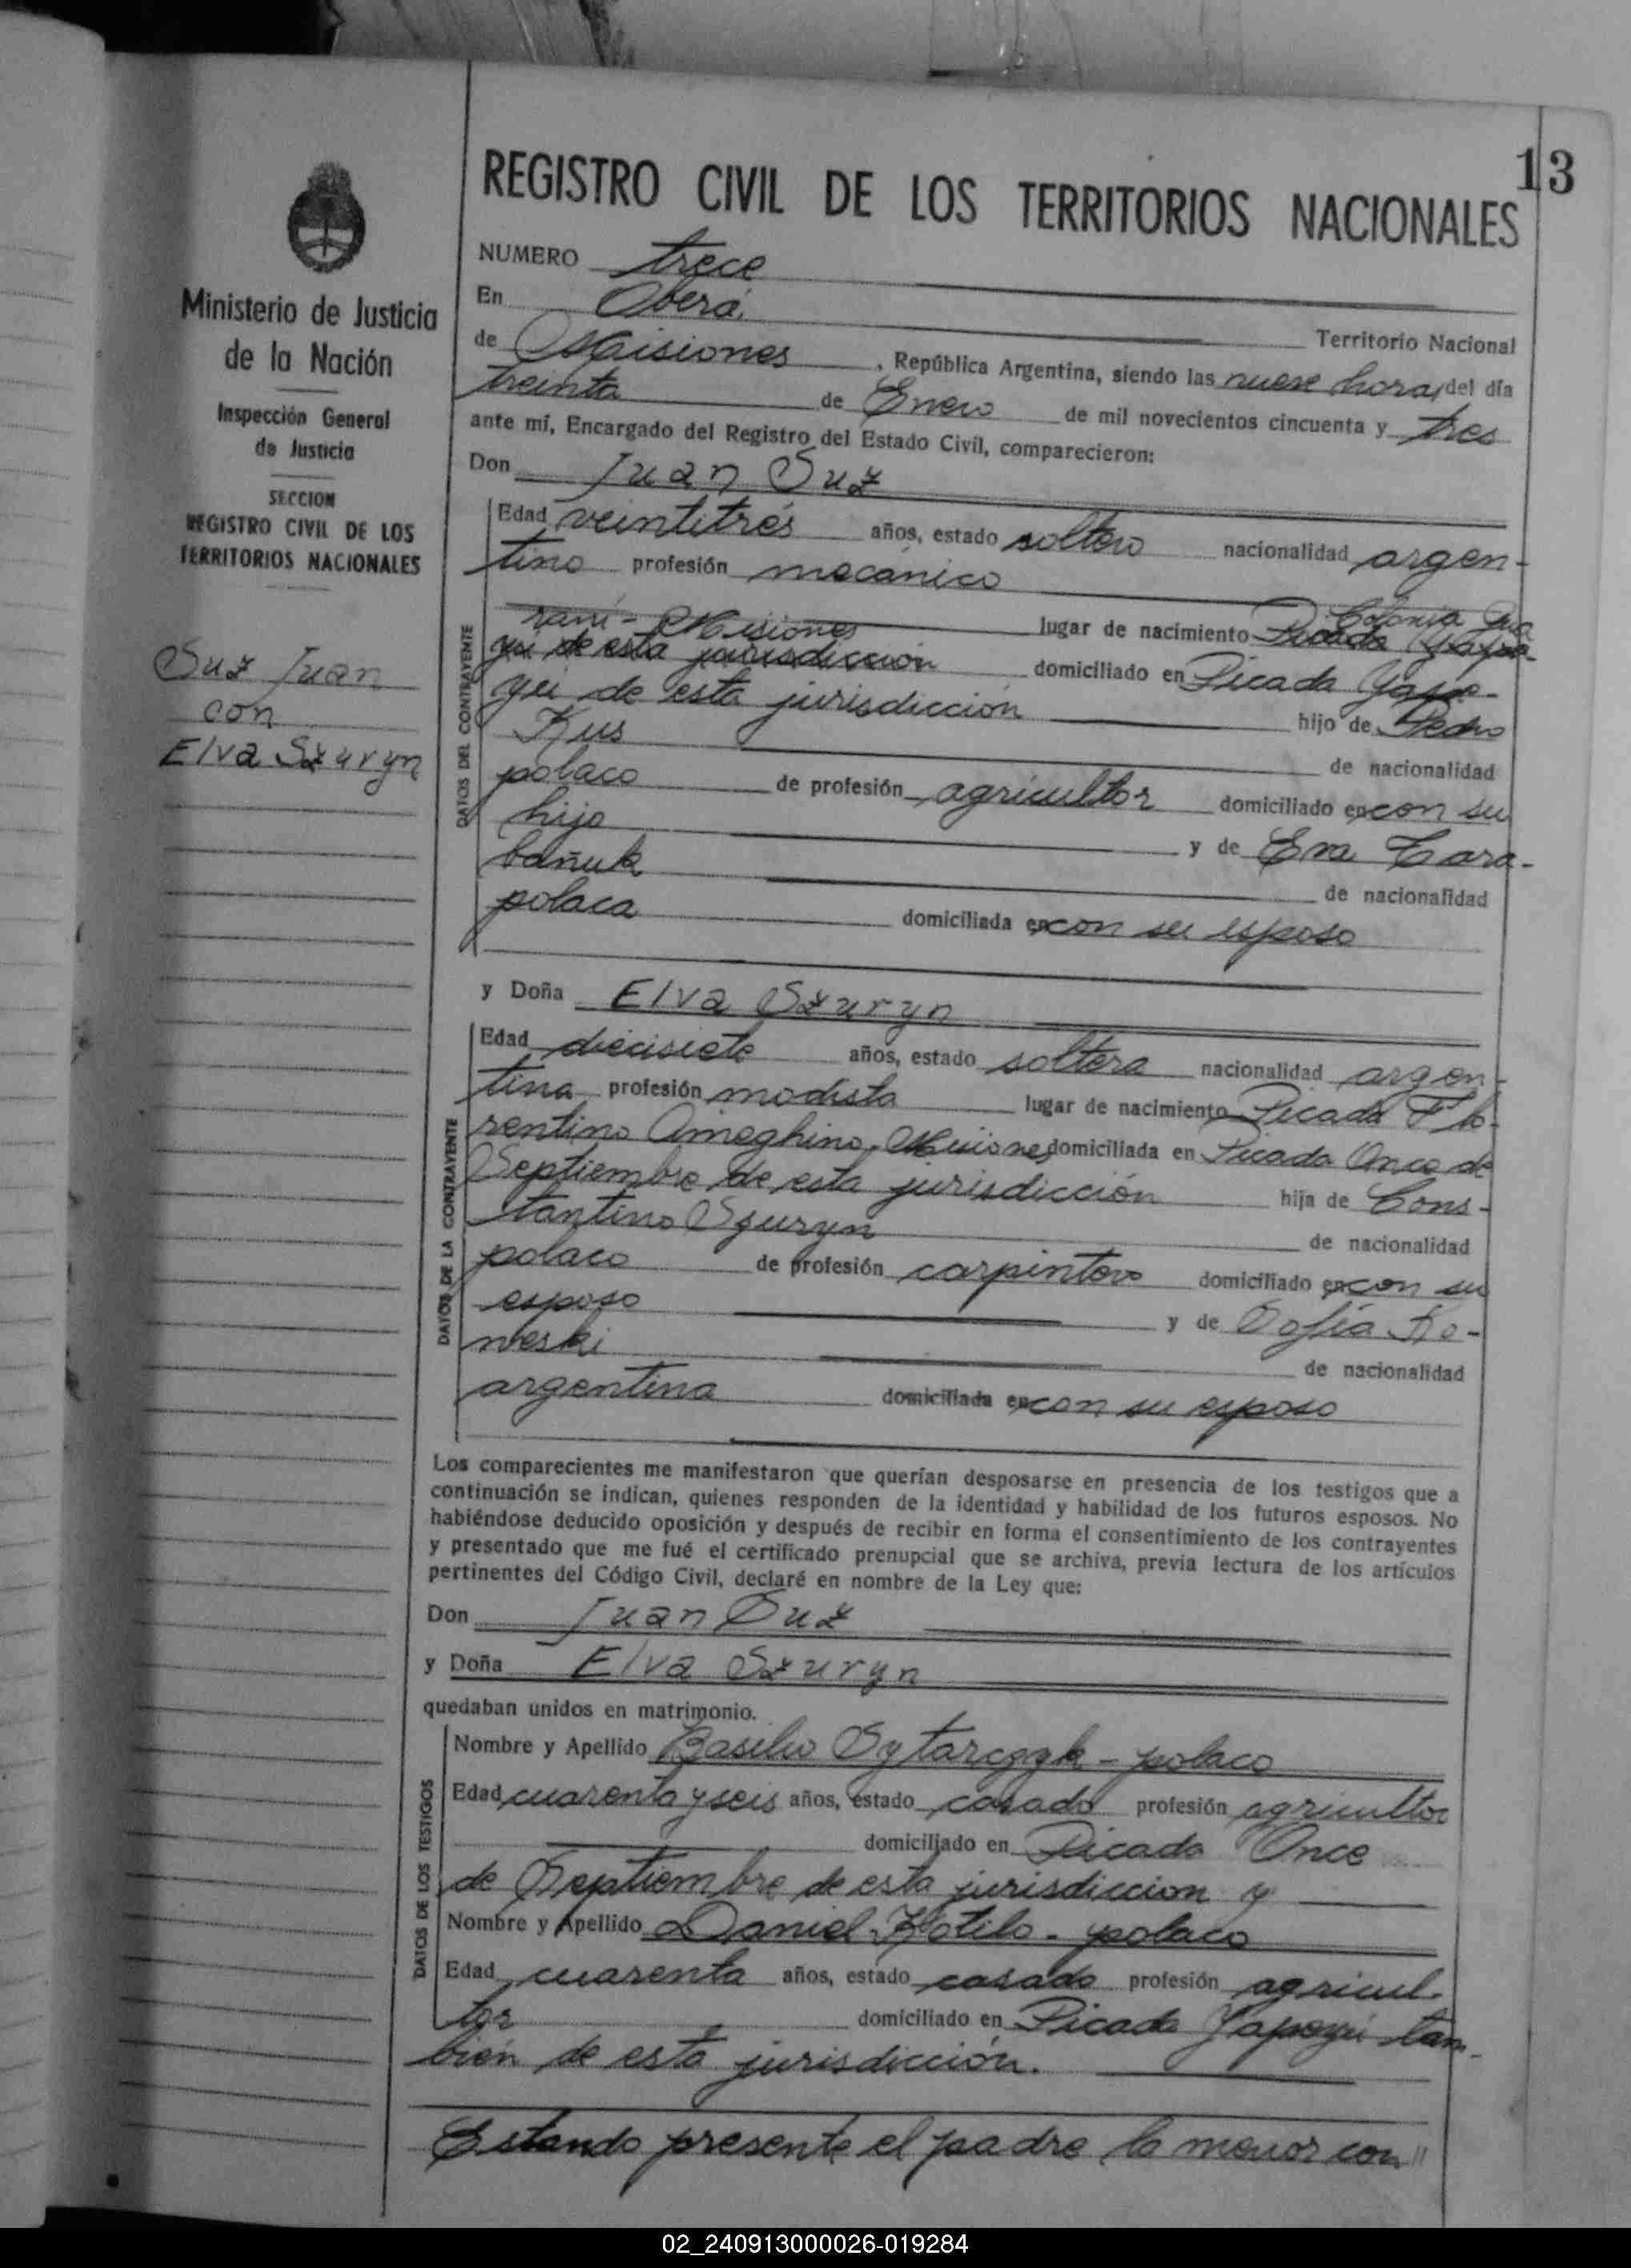 13
REGISTRO CIVIL DE LOS TERRITORIOS NACIONALES
Ministerio de Justicia
de la Nación
Inspección General
de Justicia
SECCION
REGISTRO CIVIL DE LOS
TERRITORIOS NACIONALES
Suz Juan
con
Elva Szuryn
NUMERO trece
En Oberá,
Territorio Nacional
de Misiones, República Argentina, siendo las nueve horas del día
treinta de Enero de mil novecientos cincuenta y tres
ante mí, Encargado del Registro del Estado Civil, comparecieron:
Don Juan Suz
DATOS DEL CONTRAYENTE
Edad veintitrés años, estado soltero nacionalidad argen-
tino profesión mecánico
Colonia Gua
raní - Misiones lugar de nacimiento Picada Yape-
yú de esta jurisdicción domiciliado en Picada Yape-
yú de esta jurisdicción hijo de Pedro
de nacionalidad
polaco de profesión agricultor domiciliado en con su
hijo y de Eva Cara-
bañuk de nacionalidad
polaca domiciliada en con su esposo
y Doña Elva Szuryn
DATOS DE LA CONTRAYENTE
Edad diecisiete años, estado soltera nacionalidad argen-
tina profesión modista lugar de nacimiento Picada Flo-
rentino Ameghino, Misiones domiciliada en Picada Once de
Septiembre de esta jurisdicción hija de Cons-
tantino Szuryn de nacionalidad
polaco de profesión carpintero domiciliado en con su
esposo y de Sofía Ko-
weski de nacionalidad
argentina domiciliada en con su esposo
Los comparecientes me manifestaron que querían desposarse en presencia de los testigos que a
continuación se indican, quienes responden de la identidad y habilidad de los futuros esposos. No
habiéndose deducido oposición y después de recibir en forma el consentimiento de los contrayentes
y presentado que me fué el certificado prenupcial que se archiva, previa lectura de los artículos
pertinentes del Código Civil, declaré en nombre de la Ley que:
Don Juan Suz
y Doña Elva Szuryn
quedaban unidos en matrimonio.
DATOS DE LOS TESTIGOS
Nombre y Apellido Basilio Sytarczyk - polaco
Edad cuarenta y seis años, estado casado profesión agricultor
domiciliado en Picada Once
de Septiembre de esta jurisdiccion y
Nombre y Apellido Daniel Kotilo - polaco
Edad cuarenta años, estado casado profesión agricul-
tor domiciliado en Picada Yapeyú tam-
bién de esta jurisdicción.
Estando presente el padre la menor con"
02_240913000026-019284